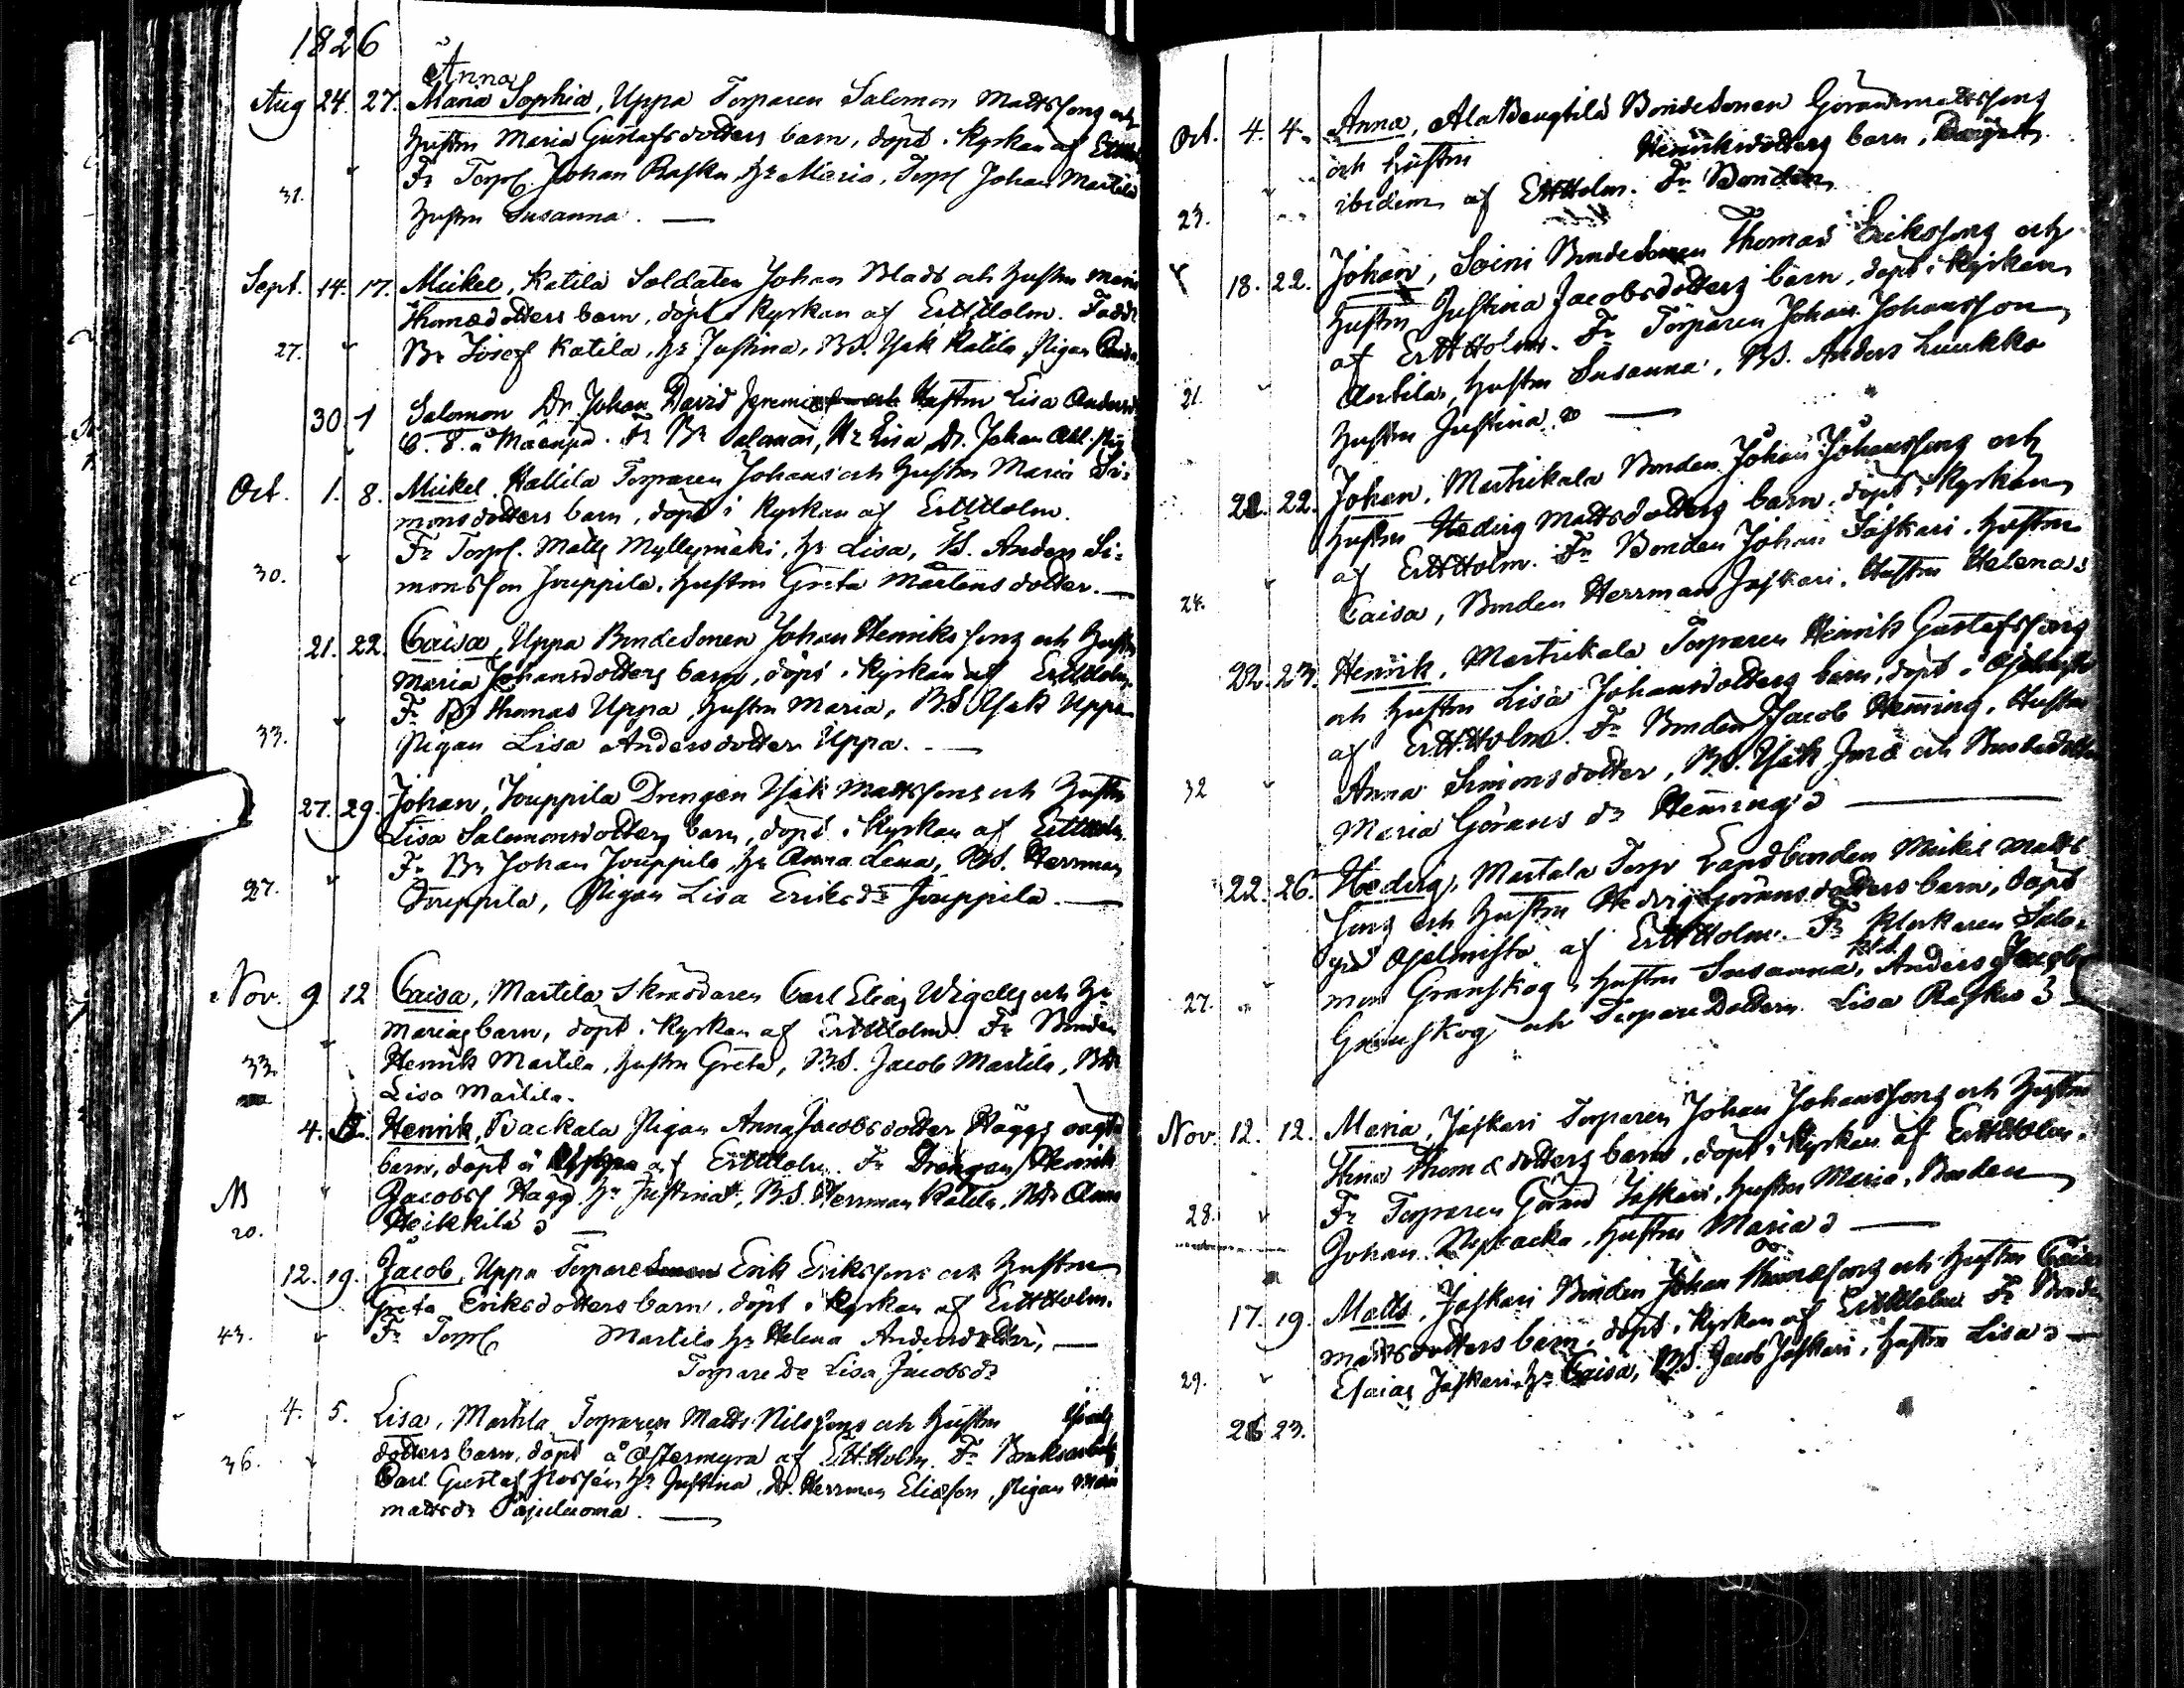 1826
Anna
Aug 24. 27. Maria Sophia, Uppa Torparen Salomon Mattssons och
hustm Maria Gustafsdotters barn, döpt i Kyrkan af
Fr Torp. Johan Rasku, hr Maria, Torp Johan Martila
31.
hustm Susanna. —
Sept. 14. 17. Mickel, Katila Soldaten Johan Blads och hustm Maria
Thomædotters barn, döpt i Kyrkan af ErHHolm. Fadd
27. Br Josef Katila, hr Justina, BS. Isak Katila, Pigan
30 1 Salomon Dr. Johan David Jeremiæ Hustm Lisa Anders
Fr Br Salomon, Hr Lisa, Dr. Johan
Oct. 1. 8. Mickel Kallila Torparen Johans och hustm Maria Si-
monsdotters barn, döpt i Kyrkan af ErHHolm.
Fr Torp. Matts Myllymäki, hr Lisa, BS. Anders Si-
30. monsson Jouppila, hustm Greta Mårtensdotter. —
21. 22. Caisa, Uppa Bondesonen Johan Henrikssons och hustm
Maria Johansdotters barn, döpt i Kyrkan af ErHHolm.
Fr Thomas Uppa, hustm Maria, BS Isak Uppa
33.
Pigan Lisa Andersdotter Uppa. —
27. 29. Johan, Jouppila Drengen Isak Mattssons och hustm
Lisa Salomonsdotters barn, döpt i Kyrkan af ErHHolm.
Fr Br Johan Jouppila, hr Anna Lena, BS. Herrman
27.
Jouppila, Pigan Lisa Eriksdr Jouppila. —
Nov. 9 12 Caisa, Martila Skräddaren Carl Elias Wigells och hu
Marias barn, döpt i Kyrkan af ErHHolm Fr Bonden
33. Henrik Martila, hustm Greta, BS. Jacob Martila,
Lisa Martila.
4. Henrik, Backala Pigan Anna Jacobsdotter Häggs oägta
barn, döpt å af ErHHolm. Fr Drengen Henrik
Jacobs Hägg hr Justina, BS. Herrman Katila, Anna
20. Heikkilä
12. 19. Jacob, Uppa Torpare Erik Erikssons och hustm
Greta Eriksdotters barn, döpt i Kyrkan af ErHHolm.
43. Fr Torp Martila hr Helena Andersdotter, —
Torpare Dr Lisa Jacobsdr
4. 5. Lisa, Martila Torparen Matts Nilssons och hustm
dotters barn, döpt å Östermyra af ErHHolm. Fr
36.
Carl Gustaf hr Justina, Dr. Herrman Eliæson, Pigan Maria
Mattsdr Pajuluoma. —
Oct. 4. 4. Anna, AlaBengtilä Bondesonen Göran Mattssons
och hustm Henriksdotters barn,
ibidem af ErHHolm. Fr Bonden
23.
18. 22. Johan, Soini Bondesonen Thomas Erikssons och
hustm Justina Jacobsdotters barn, döpt i Kyrkan
af ErHHolm. Fr Torparen Johan Johansson
21. Antila, hustm Susanna, BS. Anders Luukko
hustm Justina —
22. Johan, Martikala Bonden Johan Johanssons och
hustm Hedvig Mattsdotters barn, döpt i Kyrkan
af ErHHolm. Fr Bonden Johan Jåskari, hustm
24. Caisa, Bonden Herrman Jåskari, Hustm Helena
22. 23. Henrik, Martikala Torparen Henrik Gustafssons
och hustm Lisa Johansdotters barn, döpt å
af ErHHolm. Fr Bonden Jacob Heming, Hustm
32 Anna Simonsdotter, BS. Isak och
Maria Görans dr Heming —
22. 26. Hedvig, Martala Torp Landbonden Mickel Matts
sons och hustm Hedvig Göransdotters barn, döpt
på Ojelmisto af ErHHolm. Fr Klockaren Salo-
mon Granskog, hustm Susanna, Anders
27.
Granskog och TorpareDottern Lisa Rasku
Nov. 12. 12. Maria, Jåskari Torparen Johan Johanssons och hustm
Stina Thomædotters barn, döpt i Kyrkan af ErHHolm.
28. Fr Torparen Göran Jåskari, hustm Maria, Bonden
Johan, hustm Maria —
17. 19. Matts, Jåskari Bonden Johan Thomæsons och hustm Caisa
Mattsdotters barn, döpt i Kyrkan af ErHHolm Fr Bonden
29. Esaias Jåskari hr Caisa, BS. Jacob Jåskari, hustm Lisa —
23.